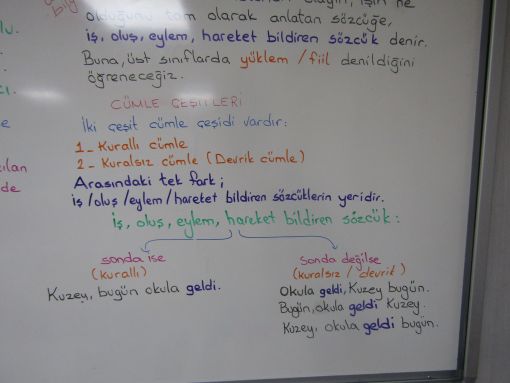 olduğunu tam olarak anlatan sözcüğe,
iş, oluş, eylem, hareket bildiren sözcük denir.
Buna, üst sınıflarda yüklem / fiil denildiğini
öğreneceğiz.
CÜMLE ÇEŞİTLERİ
İki çeşit cümle çeşidi vardır:
1_ Kurallı cümle
2_ Kuralsız cümle (Devrik cümle)
Arasındaki tek fark;
iş/oluş/eylem/hareket bildiren sözcüklerin yeridir.
İş, oluş, eylem, hareket bildiren sözcük:
sonda ise
(kurallı)
Kuzey, bugün okula geldi.
Sonda değilse
(kuralsız / devrik)
Okula geldi, Kuzey bugün.
Bugün, okula geldi Kuzey.
Kuzey, okula geldi bugün.